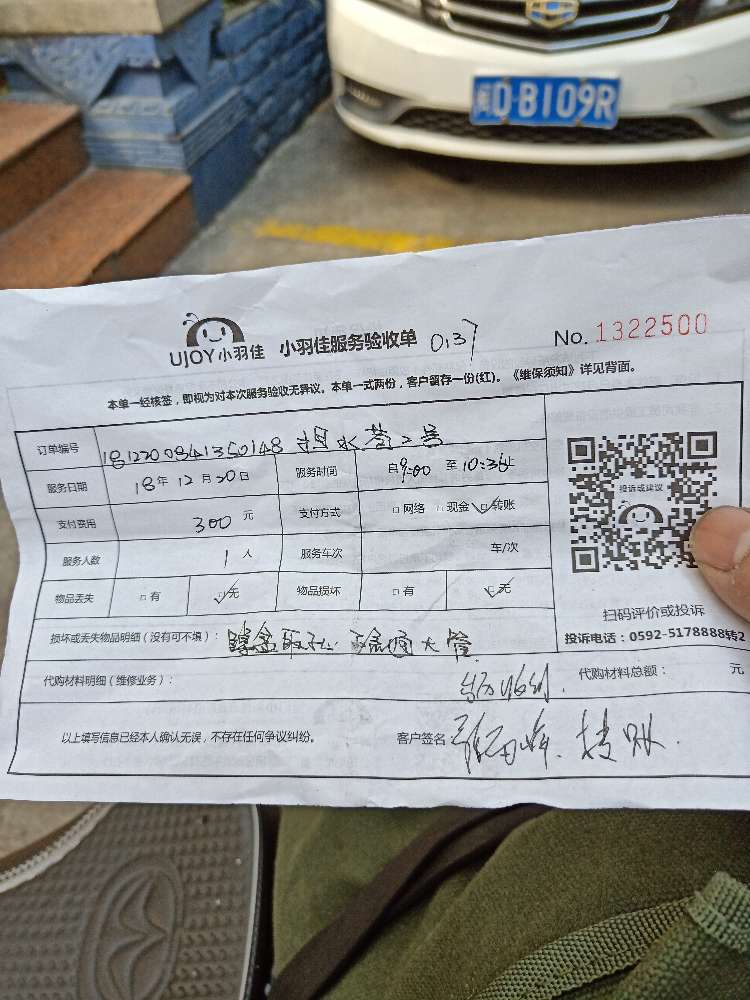 闽D·B109R
UJOY小羽佳 小羽佳服务验收单 0137 No. 1322500
本单一经核签，即视为对本次服务验收无异议。本单一式两份，客户留存一份(红)。《维保须知》详见背面。
订单编号 1812200841350148 担水巷2号
服务日期 18年12月20日 服务时间 自9:00至10:36止
支付费用 300元 支付方式 □网络 □现金 ☑转账
服务人数 1人 服务车次 车/次
物品丢失 □有 ☑无 物品损坏 □有 ☑无
投诉或建议
扫码评价或投诉
投诉电话：0592-5178888转2
损坏或丢失物品明细（没有可不填）： 大管
代购材料明细（维修业务）： 代购材料总额： 元
以上填写信息已经本人确认无误，不存在任何争议纠纷。 客户签名： 转账.